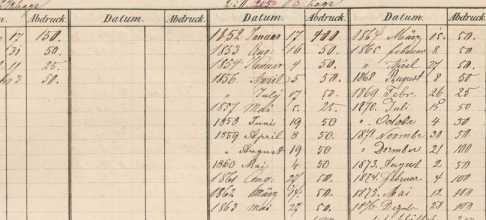 Abdruck. Datum. Abdruck. Datum. Abdruck. Datum. Abdruck.
17 150. 1852 Januar 17 400 1864 März 15. 50.
31 50. 1853 Aug. 16 50. 1865 februar 8 50.
11 25. 1854 4 50. " April 27 50.
50. 1856 April 5 50. 1868 August 8 50
" July 17 50. 1869 Febr. 26 25
1857 Mai 5. 25. 1870. Juli 15 50
1858 Juni 19 50 " October 4 30
1859 April 8 50. November 30 50
" August 19 50 " December 21 100
1860 Mai 4 50 1873. August 2 50
1861 Aug. 27 50. februar 4 100
1862 März 50. 1875. Mai 12 100
1863 Mai 27 50. 1876 28 100